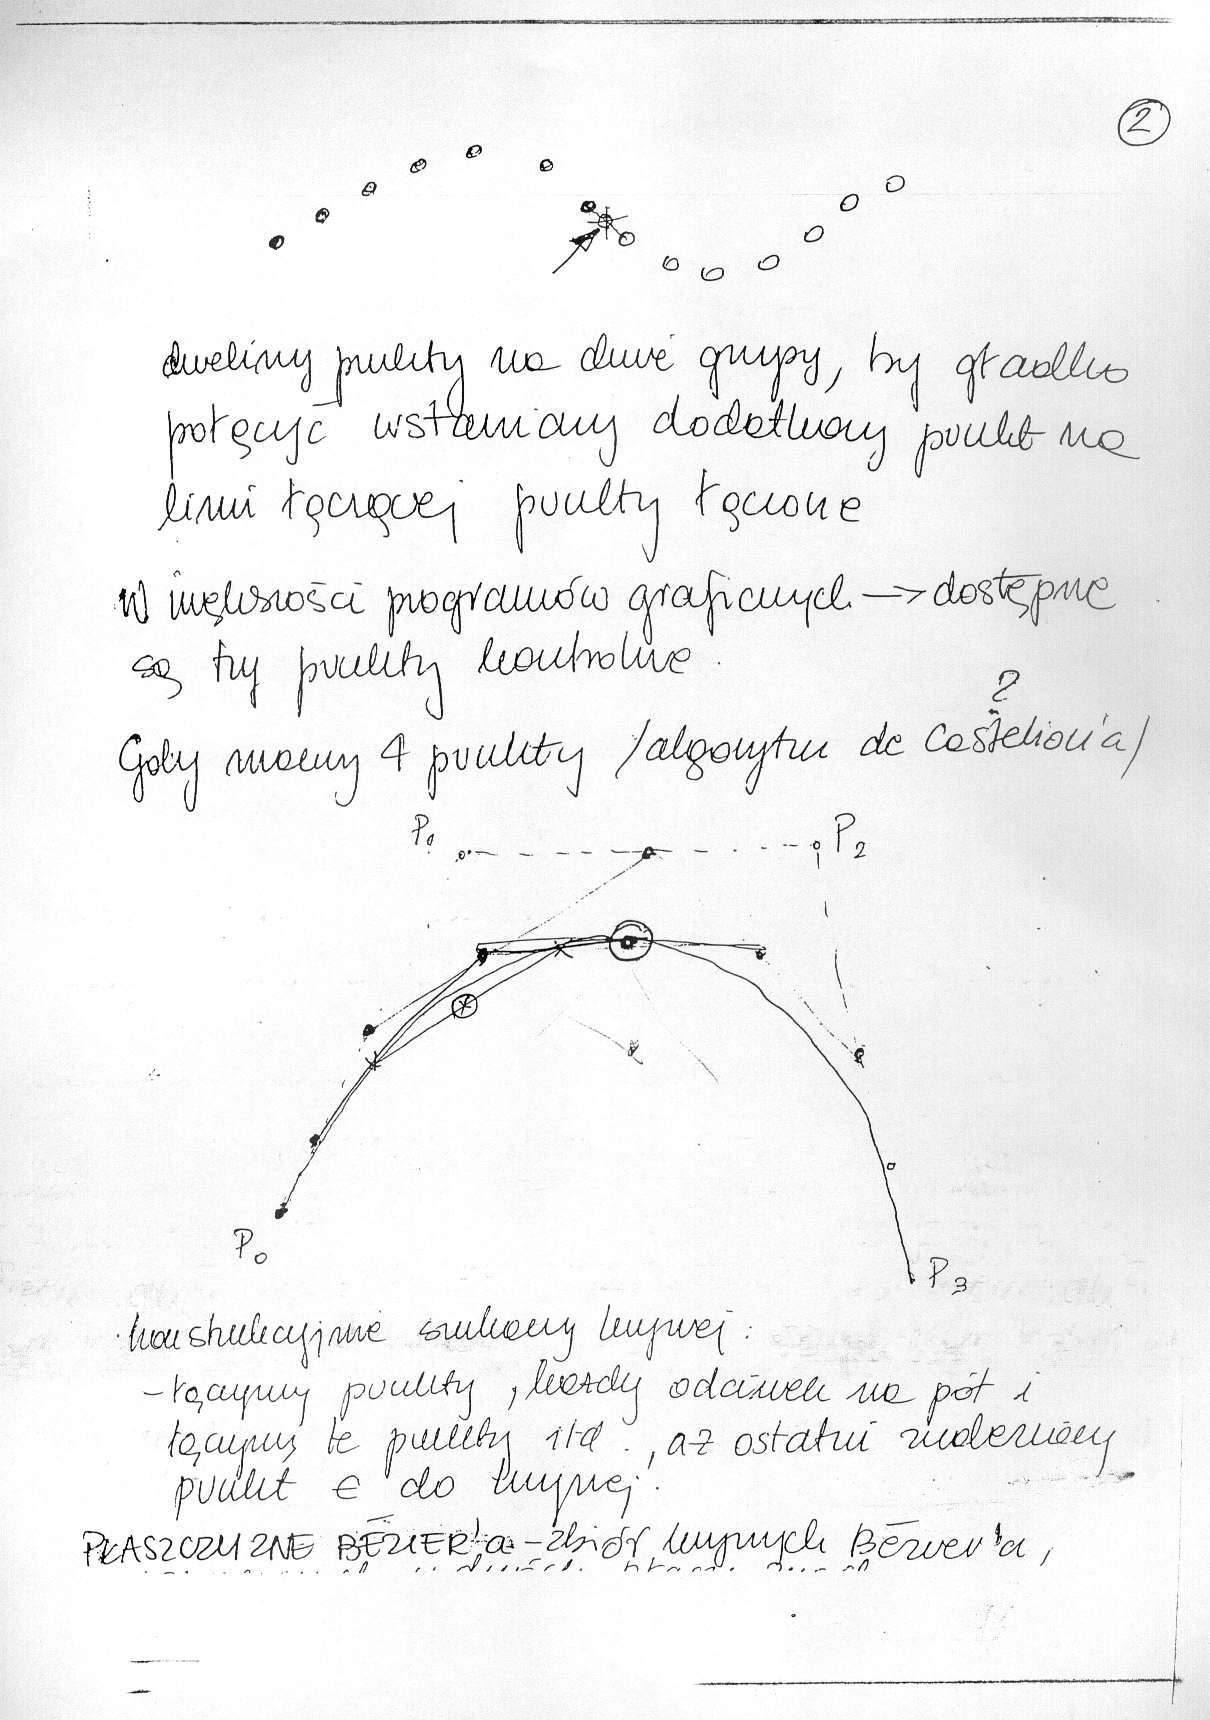 2
dzielimy punkty na dwie grupy, by gładko
połączyć wstawiamy dodatkowy punkt na
linii łączącej punkty łączone
W większości programów graficznych → dostępne
są trzy punkty kontrolne.
?
Gdy mamy 4 punkty /algorytm de Casteliou'a/
P₁ P₂
P₀
P₃
konstrukcyjnie szukamy krzywej:
- łączymy punkty, każdy odcinek na pół i
łączymy te punkty itd., aż ostatni znaleziony
punkt ∈ do krzywej.
PŁASZCZYZNE BÉZIER'a - zbiór krzywych Bézier'a,